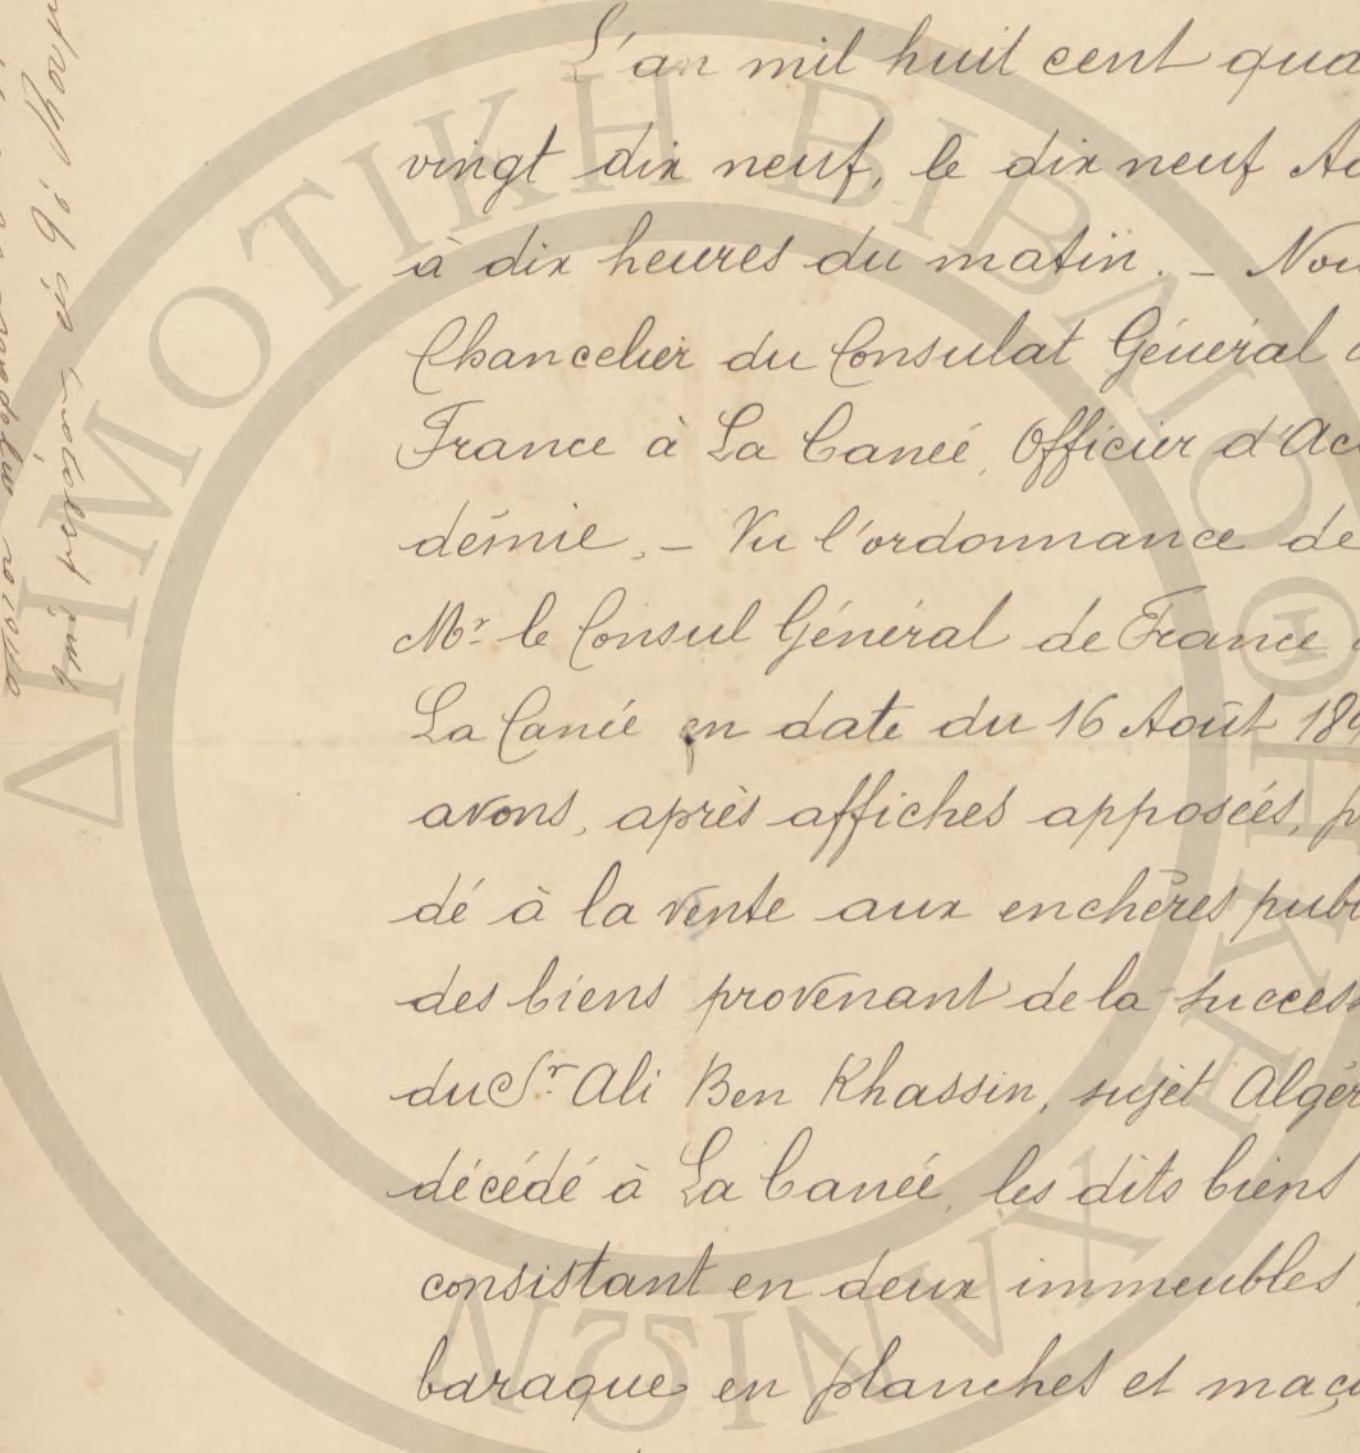 L'an mil huit cent qua
vingt dix neuf, le dix neuf Ao
à dix heures du matin. – Nou
Chancelier du Consulat Général d
France à La Canée, Officier d'Aca
démie, – Vu l'ordonnance de
Mr. le Consul Général de France à
La Canée en date du 16 Août 189
avons, après affiches apposées, p
dé à la vente aux enchères publ
des biens provenant de la success
du Sr. Ali Ben Khassin, sujet Algér
décédé à La Canée, les dits biens
consistant en deux immeubles,
baraque en planches et maç
ΔΗΜΟΤΙΚΗ ΒΙΒΛΙΟΘΗΚΗ ΧΑΝΙΩΝ